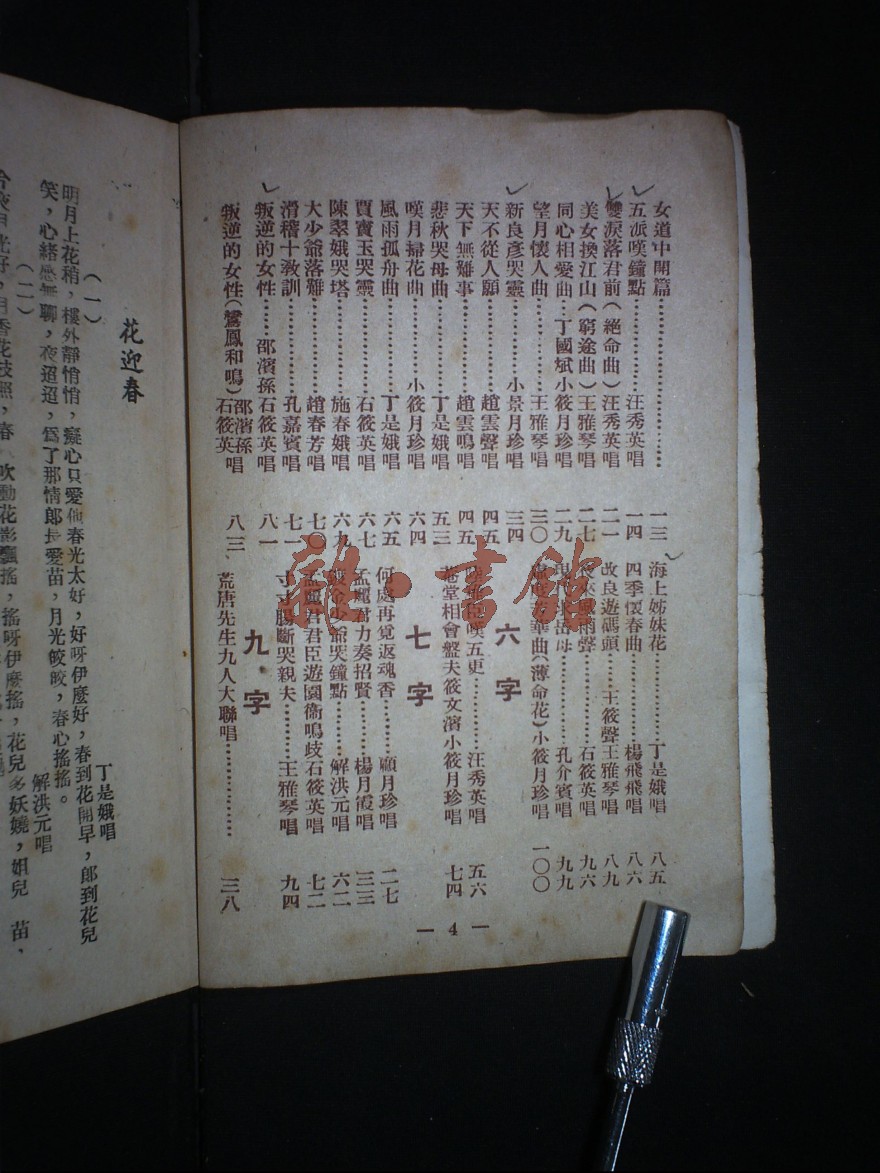 女道中開篇………………… 一三
五派嘆鐘點…………汪秀英唱 一四
雙淚落君前(絕命曲)汪秀英唱 二一
美女換江山(窮途曲)王雅琴唱 二七
同心相愛曲…丁國斌小筱月珍唱 二九
望月懷人曲…………王雅琴唱 三〇
新良彥哭靈…………小景月珍唱 三四
天不從人願…………趙雲聲唱 四五
天下無難事…………趙雲鳴唱 四五
悲秋哭母曲…………丁是娥唱 五三
嘆月掃花曲…………小筱月珍唱 六四
風雨孤舟曲…………丁是娥唱 六五
賈寶玉哭靈…………石筱英唱 六七
陳翠娥哭塔…………施春娥唱 六九
大少爺落難…………趙春芳唱 七〇
滑稽十教訓…………孔嘉賓唱 七一
叛逆的女性……邵濱孫石筱英唱 八一
叛逆的女性(鸞鳳和鳴)邵濱孫石筱英唱 八三
海上姊妹花…………丁是娥唱 八五
四季懷春曲…………楊飛飛唱 八六
改良遊碼頭…王筱聲王雅琴唱 八九
風雨聲…………石筱英唱 九六
岳母…………孔介賓唱 九九
華曲(薄命花)小筱月珍唱 一〇〇
六字
嘆五更…………汪秀英唱 五六
菴堂相會盤夫筱文濱小筱月珍唱 七四
七字
何處再覓返魂香……顧月珍唱 二七
孟麗君力奏招賢……楊月霞唱 三三
金少爺哭鐘點……解洪元唱 六二
孟麗君君臣遊園衞鳴歧石筱英唱 七二
寸寸腸斷哭親夫……王雅琴唱 九四
九字
荒唐先生九人大聯唱………… 三八
— 4 —
書館
花迎春
丁是娥唱
解洪元唱
(一)
明月上花稍,樓外靜悄悄,癡心只愛他春光太好,好呀伊麼好,春到花開早,郎到花兒
笑,心緒感無聊,夜迢迢,爲了那情郎長愛苗,月光皎皎,春心搖搖。
(二)
吹動花影飄搖,搖呀伊麼搖,花兒多妖嬈,姐兒 苗,